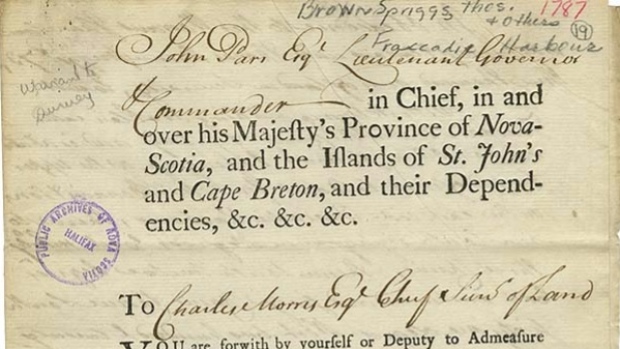 BrownSpriggs Thos. 1787
& others
19
Tracadie Harbour
John Parr Esqr. Lieutenant Governor
& Commander in Chief, in and
Warrant to
Survey
over his Majeſty's Province of Nova-
Scotia, and the Iſlands of St. John's
and Cape Breton, and their Depend-
encies, &c. &c. &c.
PUBLIC ARCHIVES OF NOVA SCOTIA
HALIFAX
To Charles Morris Esqr. Chief Survr. of Land
YOU are forwith by yourself or Deputy to Admeaſure